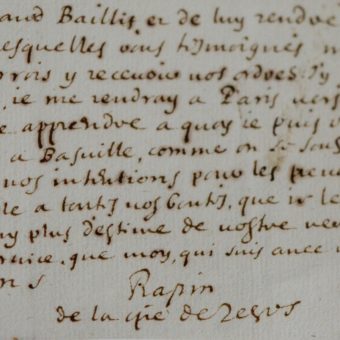 aud Baillif et de luy rendre
esquelles vous tesmoignés
rois y recevoir vos ordres. J'y
ie me rendray a Paris vers
apprendre a quoy ie puis
a Basville, comme on se
nos intentions pour les
a vos bontés, que ie le
ny plus d'estime de vostre
que moy, qui suis avec
Rapin
de la cie de Jesus